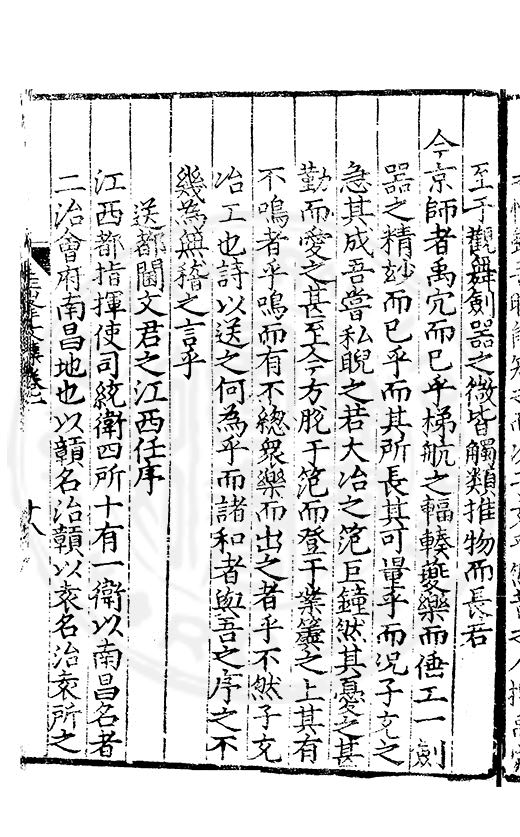 至于觀舞劍器之微皆觸類推物而長若
今京師者禹穴而已乎梯航之輻輳夔樂而倕工一劍
器之精玅而已乎而其所長其可量乎而况子充之
急其成吾嘗私睨之若大冶之笵巨鐘然其憂之甚
勤而愛之甚至今方脫于笵而登于業簴之上其有
不鳴者乎鳴而有不總衆樂而出之者乎不然子充
冶工也詩以送之何為乎而諸和者與吾之序之不
幾為無稽之言乎
送都閫文君之江西任序
江西都指揮使司統衛四所十有一衛以南昌名者
二治會府南昌地也以贑名治贑以袁名治袁所之
十八